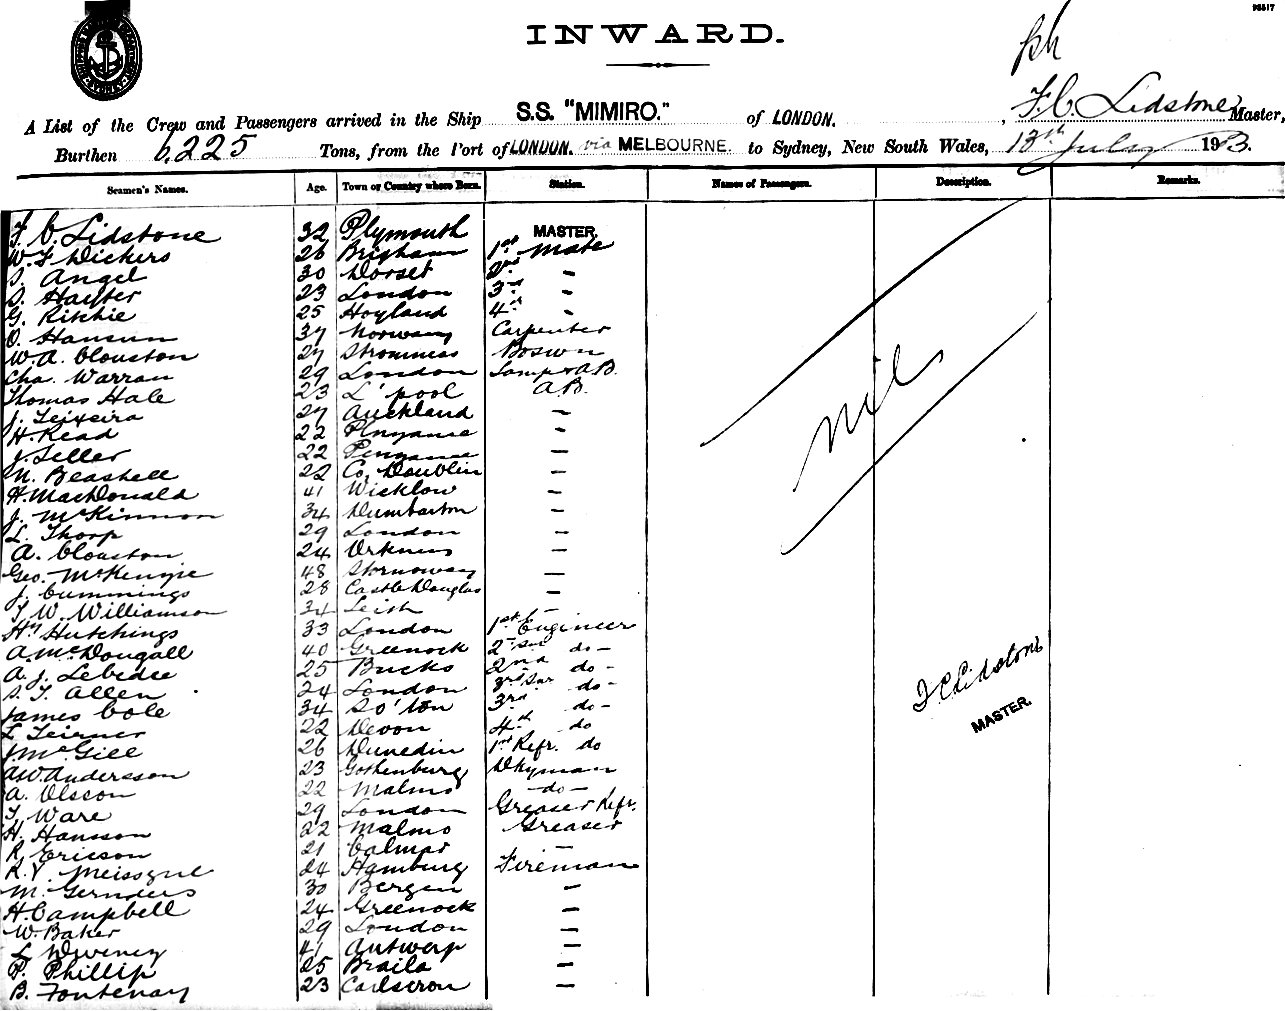 93517
INWARD.
F. C. Lidstone Master,
A List of the Crew and Passengers arrived in the Ship S.S. "MIMIRO." of LONDON.
Burthen 6,225 Tons, from the Port of LONDON. via MELBOURNE. to Sydney, New South Wales, 13th July 1903.
Seamen's Names. Age. Town or Country where Born. Station. Names of Passengers. Description. Remarks.
F. C. Lidstone 32 Plymouth MASTER.
W. F. Vickers 26 Brigham 1st Mate
S. Angel 30 Dorset 2nd –
S. Hayter 23 London 3rd –
G. Ritchie 25 Hoyland 4th –
O. Hansen 37 Norway Carpenter
W. A. Clouston 27 Stromness Boswn
Cha. Warran 29 London Lamps & AB.
Thomas Hale 23 L'pool A.B.
J. Teixeira 27 Auckland –
H. Read 22 Penzance –
J. Seller 22 Penzance –
M. Beashell 22 Co. Doublin –
H. MacDonald 41 Wicklow –
J. McKinnon 34 Dumbarton –
L. Thorp 29 London –
A. Clouston 24 Orkney –
Geo. McKenzie 48 Stornoway –
J. Cummings 28 Castle Douglas –
T. W. Williamson 34 Leith –
Hy Hutchings 33 London 1st Engineer
A. McDougall 40 Greenock 2nd do –
A. J. Lebedee 25 Bucks 2nd do –
S. T. Allen 24 London 3rd do –
James Cole 34 So'ton 3rd do –
L. 22 Devon 4th do
J. McGill 26 Dunedin 1st Refr. do
A. W. Andersson 23 Gothenburg Dkyman
A. Olsson 22 Malmo – do –
T. Ware 29 London Greaser Refr.
H. Hansson 22 Malmo Greaser
R. Ericson 21 Calmar –
R. V. 24 Hamburg Fireman
M. 30 Bergen –
H. Campbell 24 Greenock –
W. Baker 29 London –
L. 41 Antwerp –
P. Phillip 25 Braila –
B. Fontenay 23 Carlscron –
nil
F C Lidstone
MASTER.